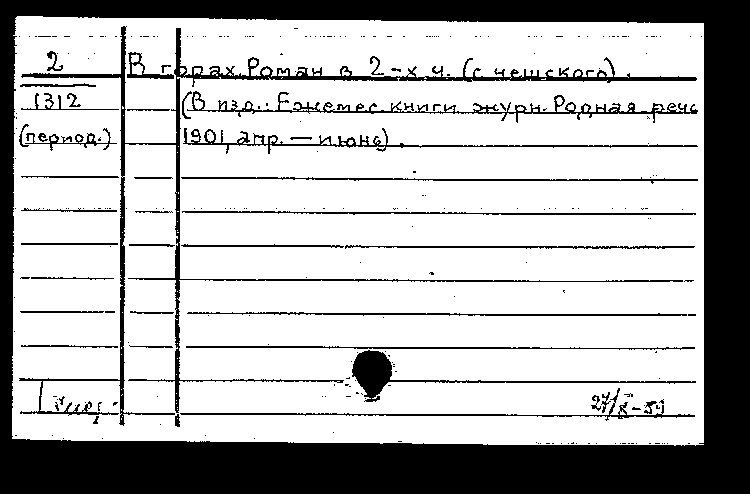 2 В горах. Роман в 2-х ч. (с чешского).
1312 (В изд.: Ежемес. книги журн. Родная речь
(период.) 1901, апр. — июнь).
27/X-59